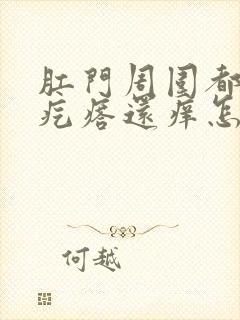 肛門周圍都
疙瘩還痒怎
何越